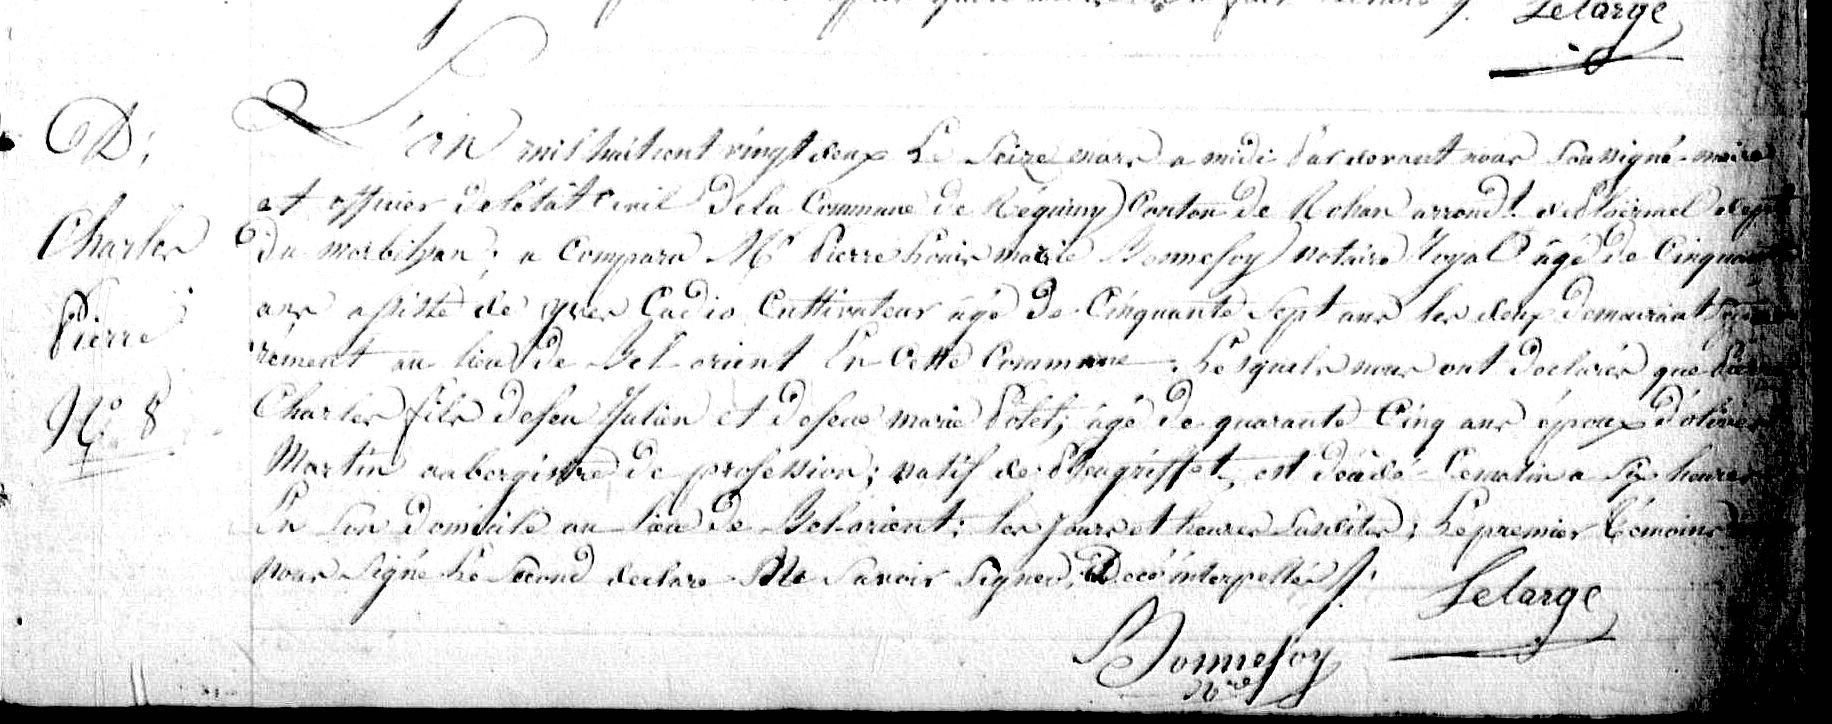 Lelarge
D.
Charles
Pierre
N° 8
L'an mil huit cent vingt deux Le Seize mars a midi Par devant nous Soussigné maire
et officier de l'état Civil de la Commune de Réguiny Canton de Rohan arrond.t de Ploërmel
du morbihan; a Comparu Mr Pierre Louis marie Bonnefoy notaire royal âgé de Cinquante
ans assisté de yves Cadio Cultivateur âgé de Cinquante Sept ans les deux demeurant
rement au lieu de Bel-orient En Cette Commune. Lesquels nous ont déclarés que Pierre
Charles fils de feu Julien et de feue marie Polet; âgé de quarante Cinq ans époux d'olive
Martin aubergiste de profession; natif de Pleugriffet, est décédé Ce matin a Six heures
En Son domicile au lieu de Bel-orient; les Jours et heures Susdites; Le premier témoins
nous Signé Le Second declare Ne Savoir Signer, De ce interpellés ./.
Lelarge
Bonnefoy
N.re